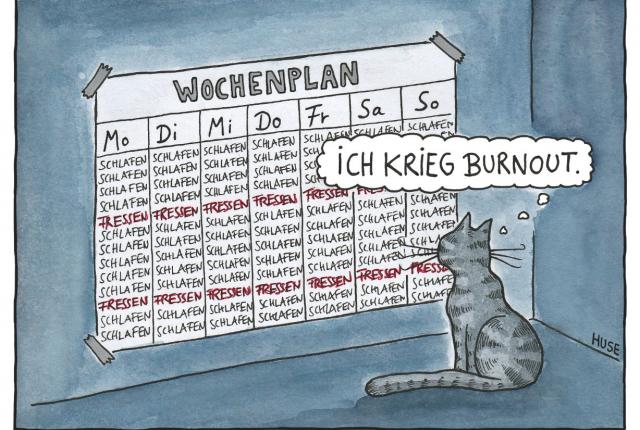 WOCHENPLAN
Mo Di Mi Do Fr Sa So
SCHLAFEN SCHLAFEN SCHLAFEN SCHLAFEN SCHLAFEN SCHLAFEN SCHLAFEN
SCHLAFEN SCHLAFEN SCHLAFEN SCHLAFEN
SCHLAFEN SCHLAFEN SCHLAFEN SCHLAFEN
SCHLAFEN SCHLAFEN SCHLAFEN SCHLAFEN
FRESSEN FRESSEN FRESSEN FRESSEN FRESSEN
SCHLAFEN SCHLAFEN SCHLAFEN SCHLAFEN SCHLAFEN SCHLAFEN
SCHLAFEN SCHLAFEN SCHLAFEN SCHLAFEN SCHLAFEN SCHLAFEN
SCHLAFEN SCHLAFEN SCHLAFEN SCHLAFEN SCHLAFEN SCHLAFEN
SCHLAFEN SCHLAFEN SCHLAFEN SCHLAFEN SCHLAFEN SCHLAFEN
SCHLAFEN SCHLAFEN SCHLAFEN SCHLAFEN SCHLAFEN SCHLAFEN
FRESSEN FRESSEN FRESSEN FRESSEN FRESSEN FRESSEN FRESSE
SCHLAFEN SCHLAFEN SCHLAFEN SCHLAFEN SCHLAFEN SCHLAFEN
SCHLAFEN SCHLAFEN SCHLAFEN SCHLAFEN SCHLAFEN SCHLAFEN
ICH KRIEG BURNOUT.
HUSE